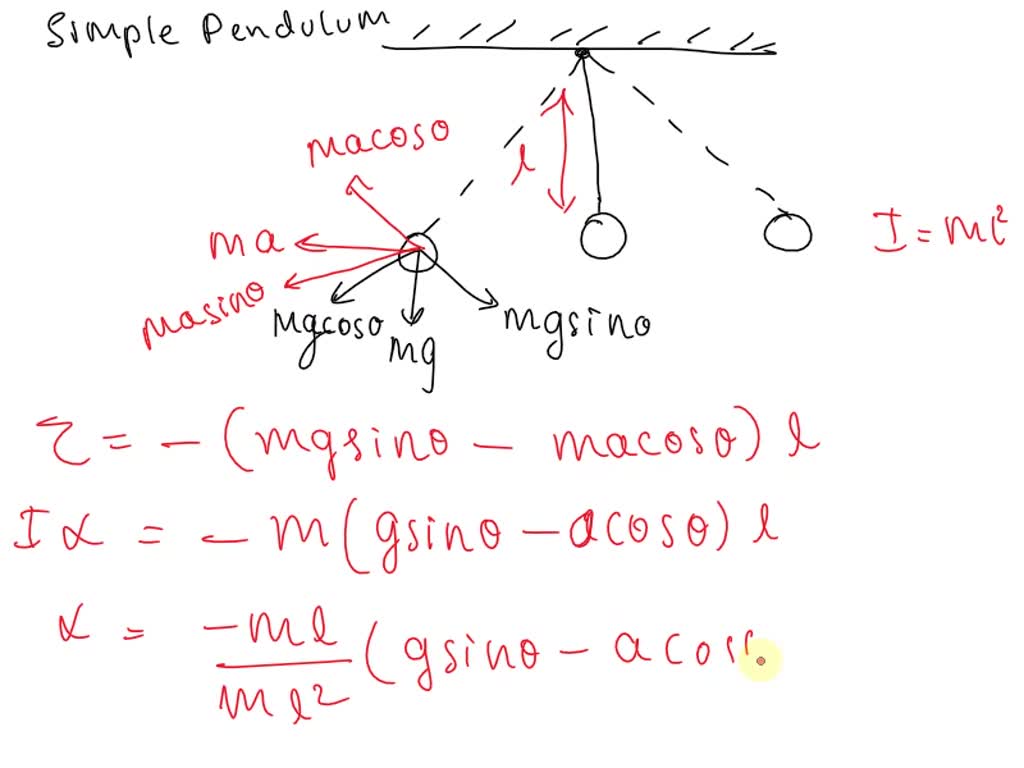 Simple Pendulum
macosθ
l
ma
I = ml²
masinθ
mgcosθ
mg
mgsinθ
τ = - (mgsinθ - macosθ) l
Iα = - m(gsinθ - acosθ) l
α = -ml/ml² (gsinθ - acos